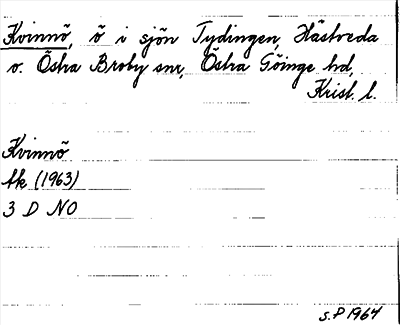 Kvinnö, ö i sjön Tydingen, Hästveda
o. Östra Broby snr, Östra Göinge hd,
Krist. l.
Kvinnö
tk (1963)
3 D NO
S.P 1964